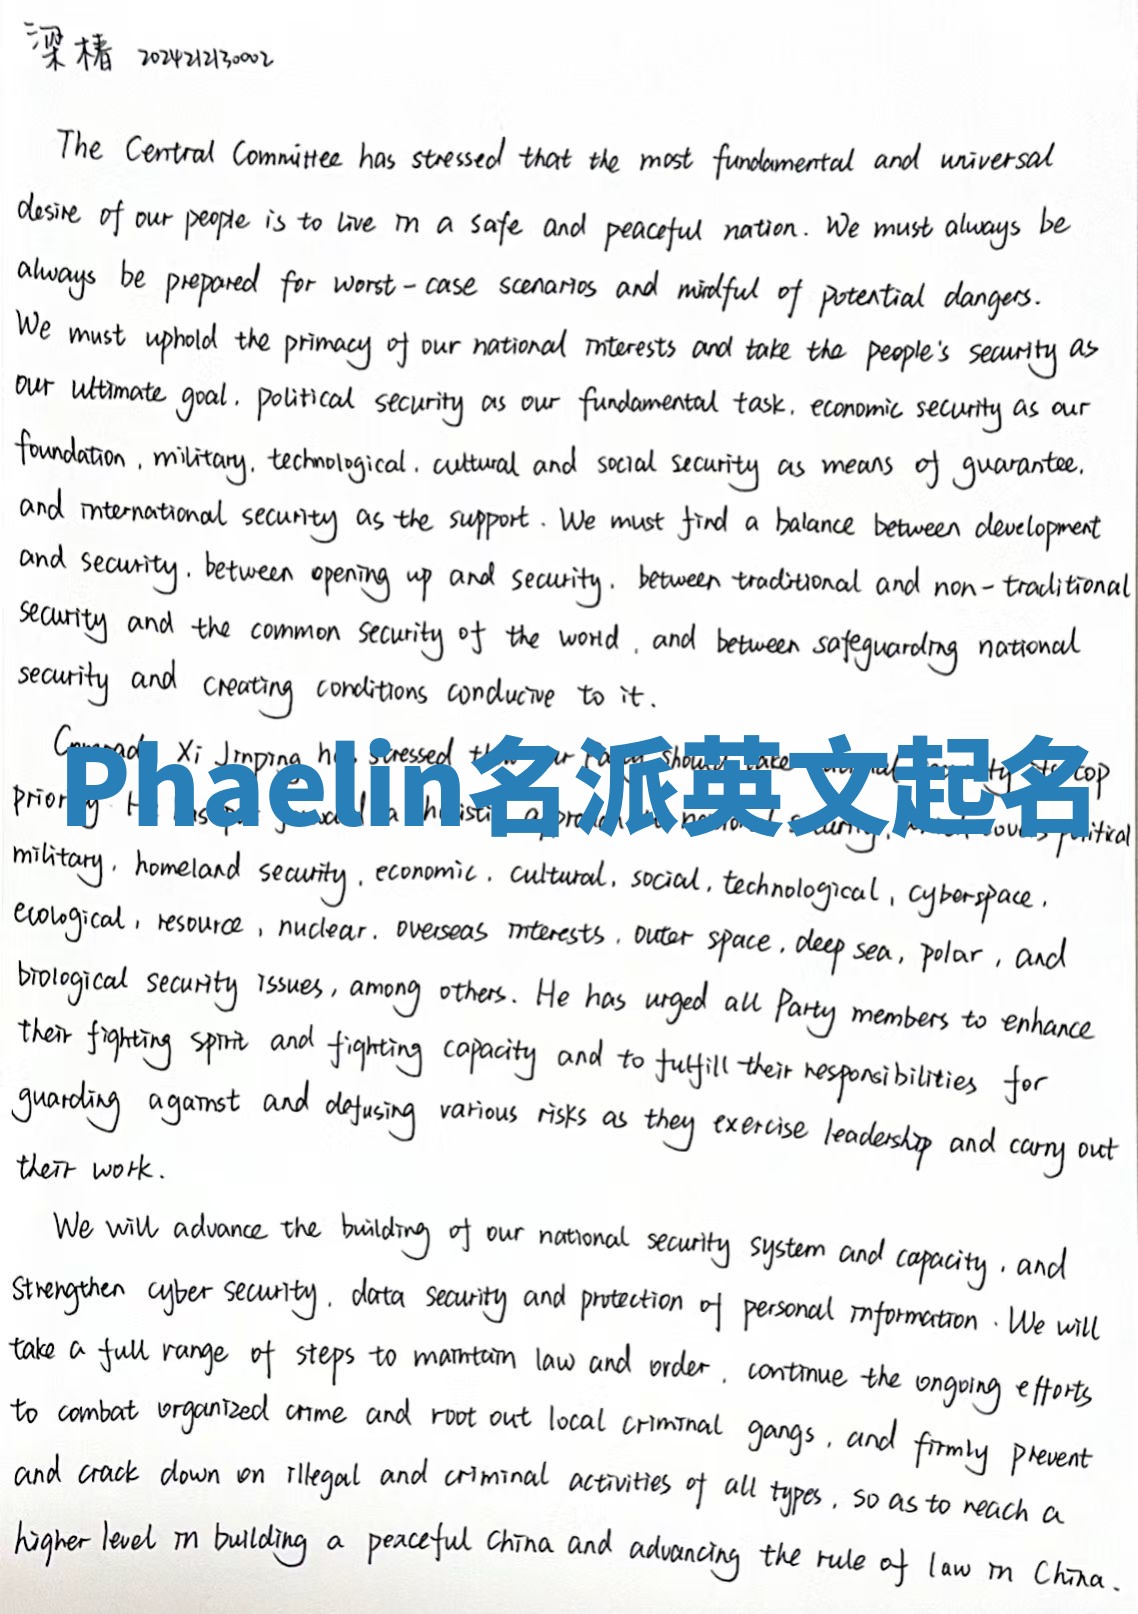 梁椿 2024212130002
The Central Committee has stressed that the most fundamental and universal
desire of our people is to live in a safe and peaceful nation. We must always be
always be prepared for worst-case scenarios and mindful of potential dangers.
We must uphold the primacy of our national interests and take the people's security as
our ultimate goal, political security as our fundamental task, economic security as our
foundation, military, technological, cultural and social security as means of guarantee,
and international security as the support. We must find a balance between development
and security, between opening up and security, between traditional and non-traditional
security and the common security of the world, and between safeguarding national
security and creating conditions conducive to it.
Xi Jinping stressed top
Phaelin名派英文起名
political
military, homeland security, economic, cultural, social, technological, cyberspace,
ecological, resource, nuclear, overseas interests, outer space, deep sea, polar, and
biological security issues, among others. He has urged all Party members to enhance
their fighting spirit and fighting capacity and to fulfill their responsibilities for
guarding against and defusing various risks as they exercise leadership and carry out
their work.
We will advance the building of our national security system and capacity, and
strengthen cyber security, data security and protection of personal information. We will
take a full range of steps to maintain law and order, continue the ongoing efforts
to combat organized crime and root out local criminal gangs, and firmly prevent
and crack down on illegal and criminal activities of all types, so as to reach a
higher level in building a peaceful China and advancing the rule of law in China.